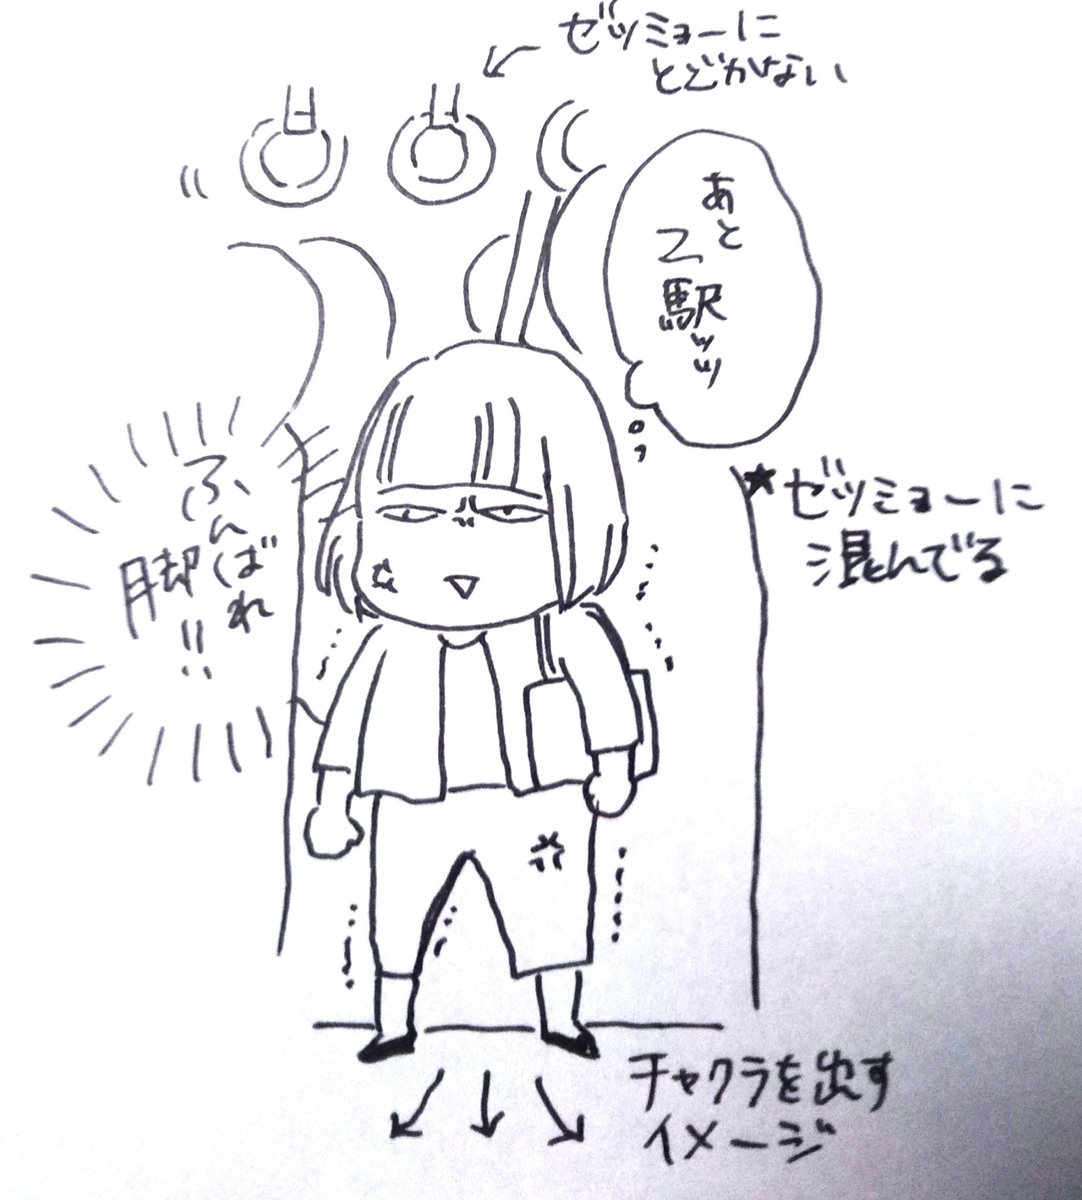 ゼツミョーに
とどかない
あと
2駅ッッ
★ゼツミョーに
混んでる
ふんばれ
脚!!
チャクラを出す
イメージ